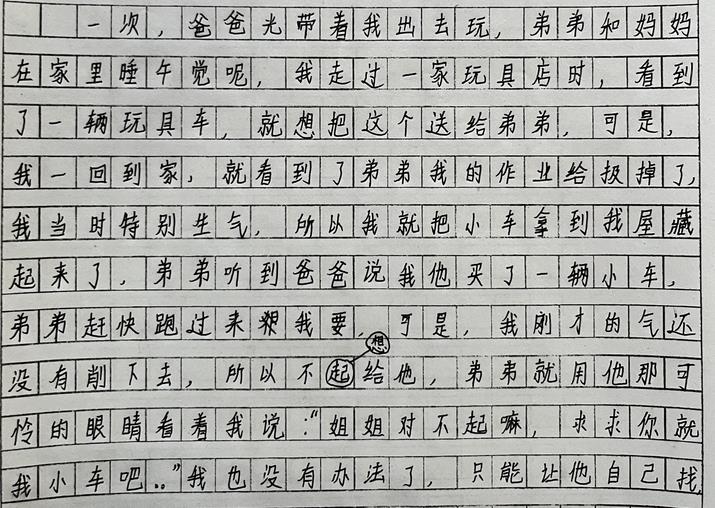 一次，爸爸光带着我出去玩，弟弟和妈妈
在家里睡午觉呢，我走过一家玩具店时，看到
了一辆玩具车，就想把这个送给弟弟，可是，
我一回到家，就看到了弟弟我的作业给扱掉了，
我当时特别生气，所以我就把小车拿到我屋藏
起来了，弟弟听到爸爸说我他买了一辆小车，
弟弟赶快跑过来想我要，可是，我刚才的气还
没有削下去，所以不起想给他，弟弟就用他那可
怜的眼睛看着我说："姐姐对不起嘛，求求你就
我小车吧.."我也没有办法了，只能让他自己找，